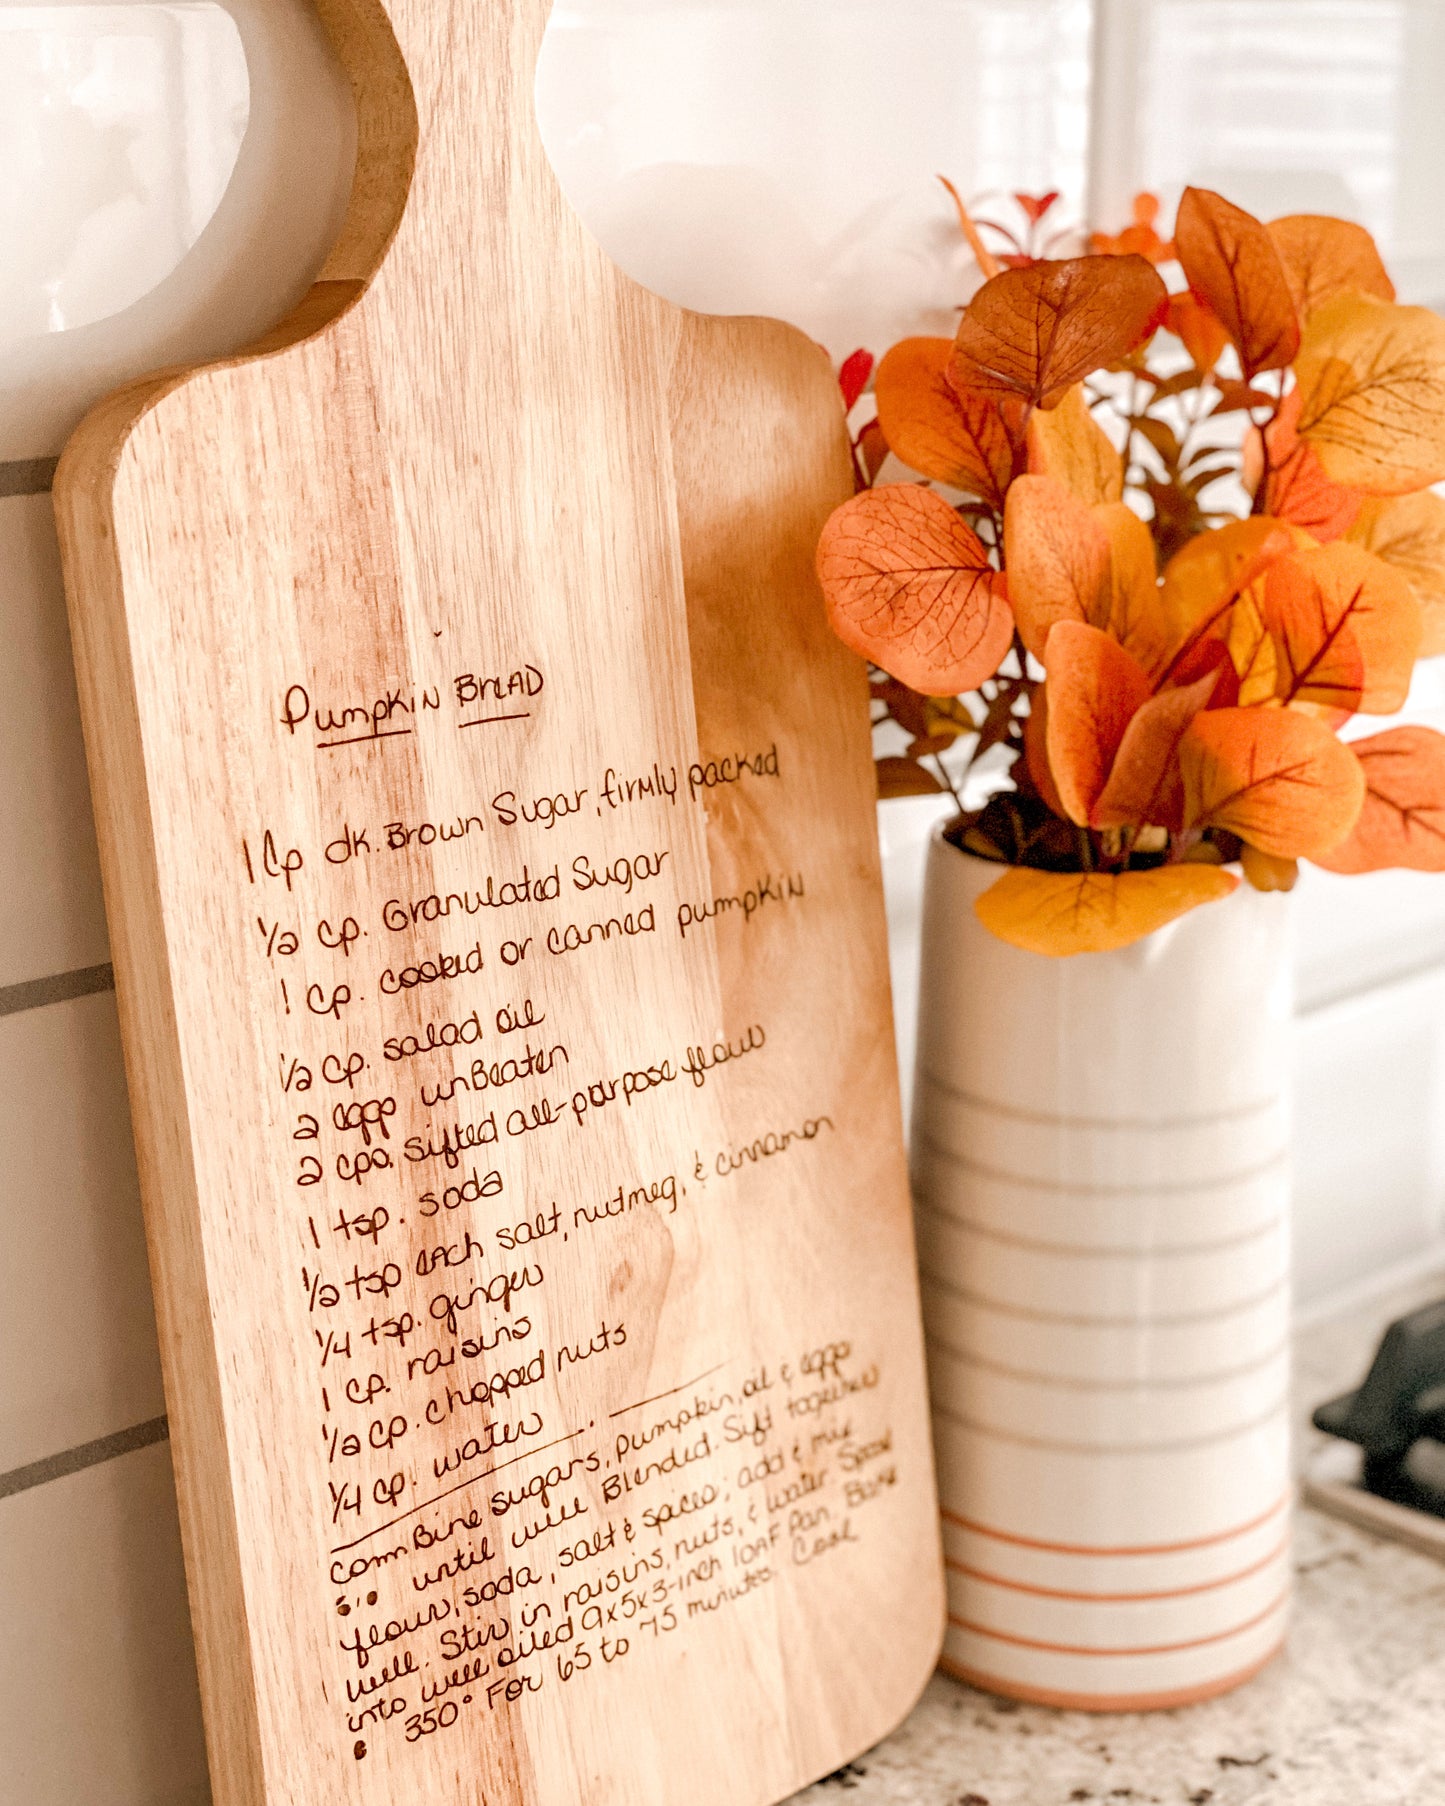 Pumpkin Bread
1 Cp dk. Brown Sugar, firmly packed
1/2 cp. Granulated Sugar
1 cp. cooked or canned pumpkin
1/2 cp. salad oil
2 eggs unBeaten
2 cps. sifted all-purpose flour
1 tsp. soda
1/2 tsp each salt, nutmeg, & cinnamon
1/4 tsp. ginger
1 cp. raisins
1/2 cp. chopped nuts
1/4 cp. water
ComBine sugars, pumpkin, oil & eggs
until well Blended. Sift together
flour, soda, salt & spices; add & mix
well. Stir in raisins, nuts, & water. Spoon
into well oiled 9x5x3-inch loaf Pan. Bake
350° For 65 to 75 minutes. Cool